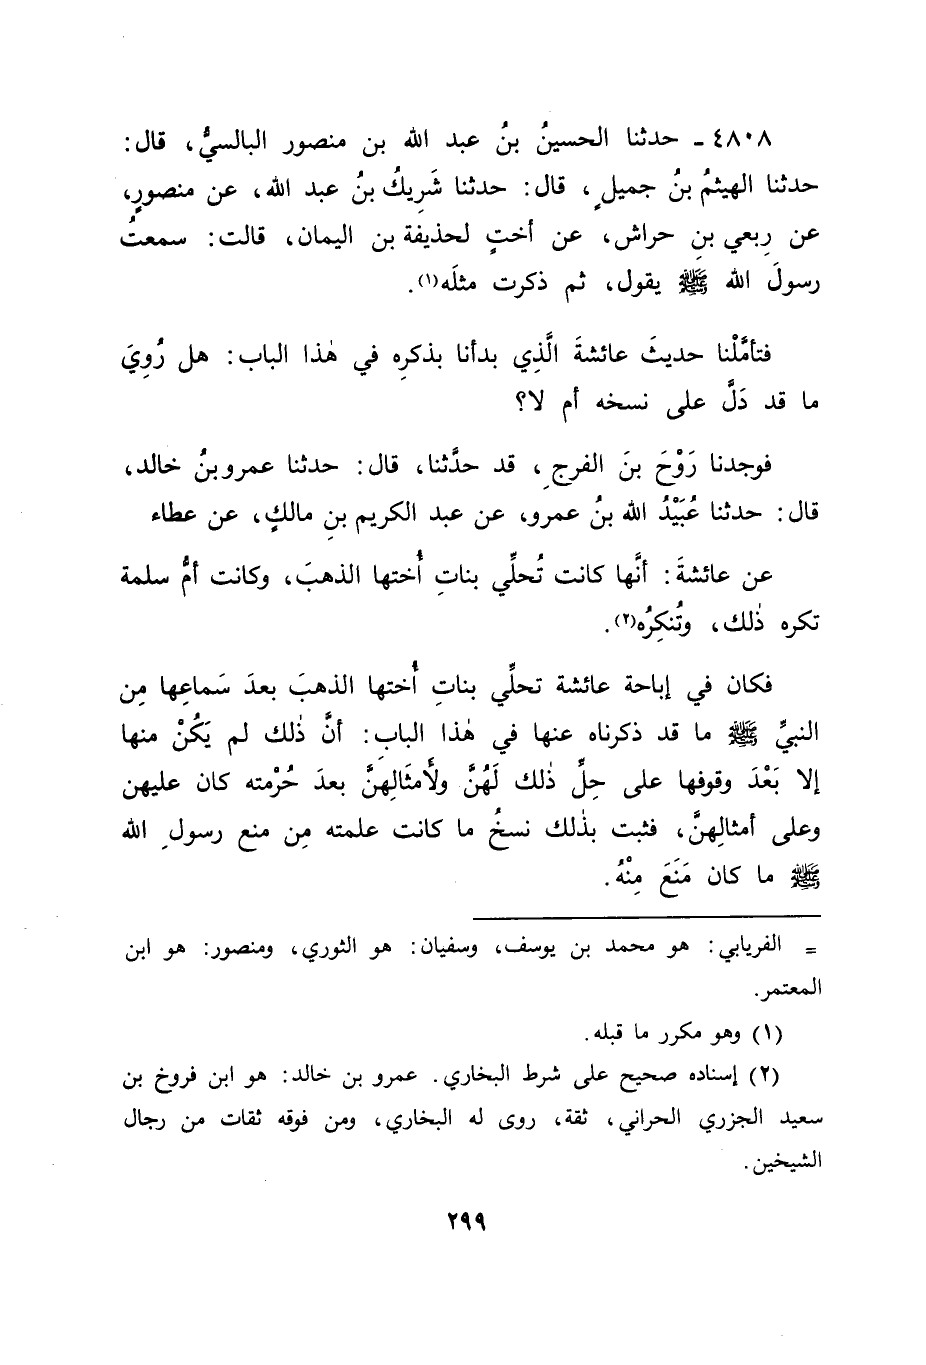 ٤٨٠٨ ـ حدثنا الحسينُ بنُ عبد الله بن منصور البالسيُّ، قال:
حدثنا الهيثمُ بنُ جميلٍ، قال: حدثنا شَرِيكُ بنُ عبد الله، عن منصورٍ،
عن رِبعي بنِ حراش، عن أختٍ لحذيفة بن اليمان، قالت: سمعتُ
رسولَ الله ﷺ يقول، ثم ذكرت مثلَه(١).
فتأمَّلْنا حديثَ عائشةَ الَّذِي بدأنا بذكرِه في هٰذا الباب: هل رُوِيَ
ما قد دَلَّ على نسخه أم لا؟
فوجدنا رَوْحَ بنَ الفرجِ، قد حدَّثنا، قال: حدثنا عمرو بنُ خالد،
قال: حدثنا عُبَيْدُ الله بنُ عمرو، عن عبد الكريم بنِ مالكٍ، عن عطاء
عن عائشةَ: أنَّها كانت تُحلِّي بناتِ أُختها الذهبَ، وكانت أمُّ سلمة
تكره ذٰلك، وتُنكِرُه(٢).
فكان في إباحة عائشة تحلِّي بناتِ أُختها الذهبَ بعدَ سَماعِها مِن
النبيِّ ﷺ ما قد ذكرناه عنها في هٰذا البابِ: أنَّ ذٰلك لم يَكُنْ منها
إلا بَعْدَ وقوفها على حِلِّ ذٰلك لَهُنَّ ولأَمثَالِهنَّ بعدَ حُرْمته كان عليهن
وعلى أمثالِهنَّ، فثبت بذٰلك نسخُ ما كانت علمته مِن منع رسولِ الله
ﷺ ما كان مَنَعَ مِنْهُ.
= الفريابي: هو محمد بن يوسف، وسفيان: هو الثوري، ومنصور: هو ابن
المعتمر.
(١) وهو مكرر ما قبله.
(٢) إسناده صحيح على شرط البخاري. عمرو بن خالد: هو ابن فروخ بن
سعيد الجزري الحراني، ثقة، روى له البخاري، ومن فوقه ثقات من رجال
الشيخين.
٢٩٩